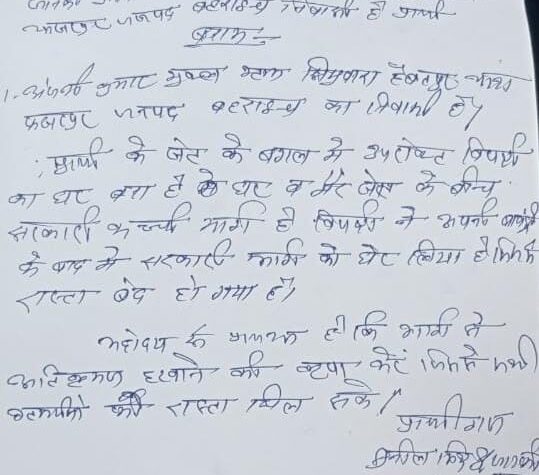 जनपद बहराइच निवासी है प्रार्थी
बनाम
1. कुमार शुक्ल ग्राम हैबतपुर थाना
फखरपुर जनपद बहराइच का निवासी है।
प्रार्थी के खेत के बगल में उपरोक्त विपक्षी
का घर बना है घर व मेरे खेत के बीच
सरकारी कच्ची मार्ग है विपक्षी ने अपनी
के बाद में सरकारी मार्ग को घेर लिया है जिससे
रास्ता बंद हो गया है।
महोदय से है कि मार्ग से
अतिक्रमण हटवाने की कृपा करें जिससे सभी
को रास्ता मिल सके।
प्रार्थीगण